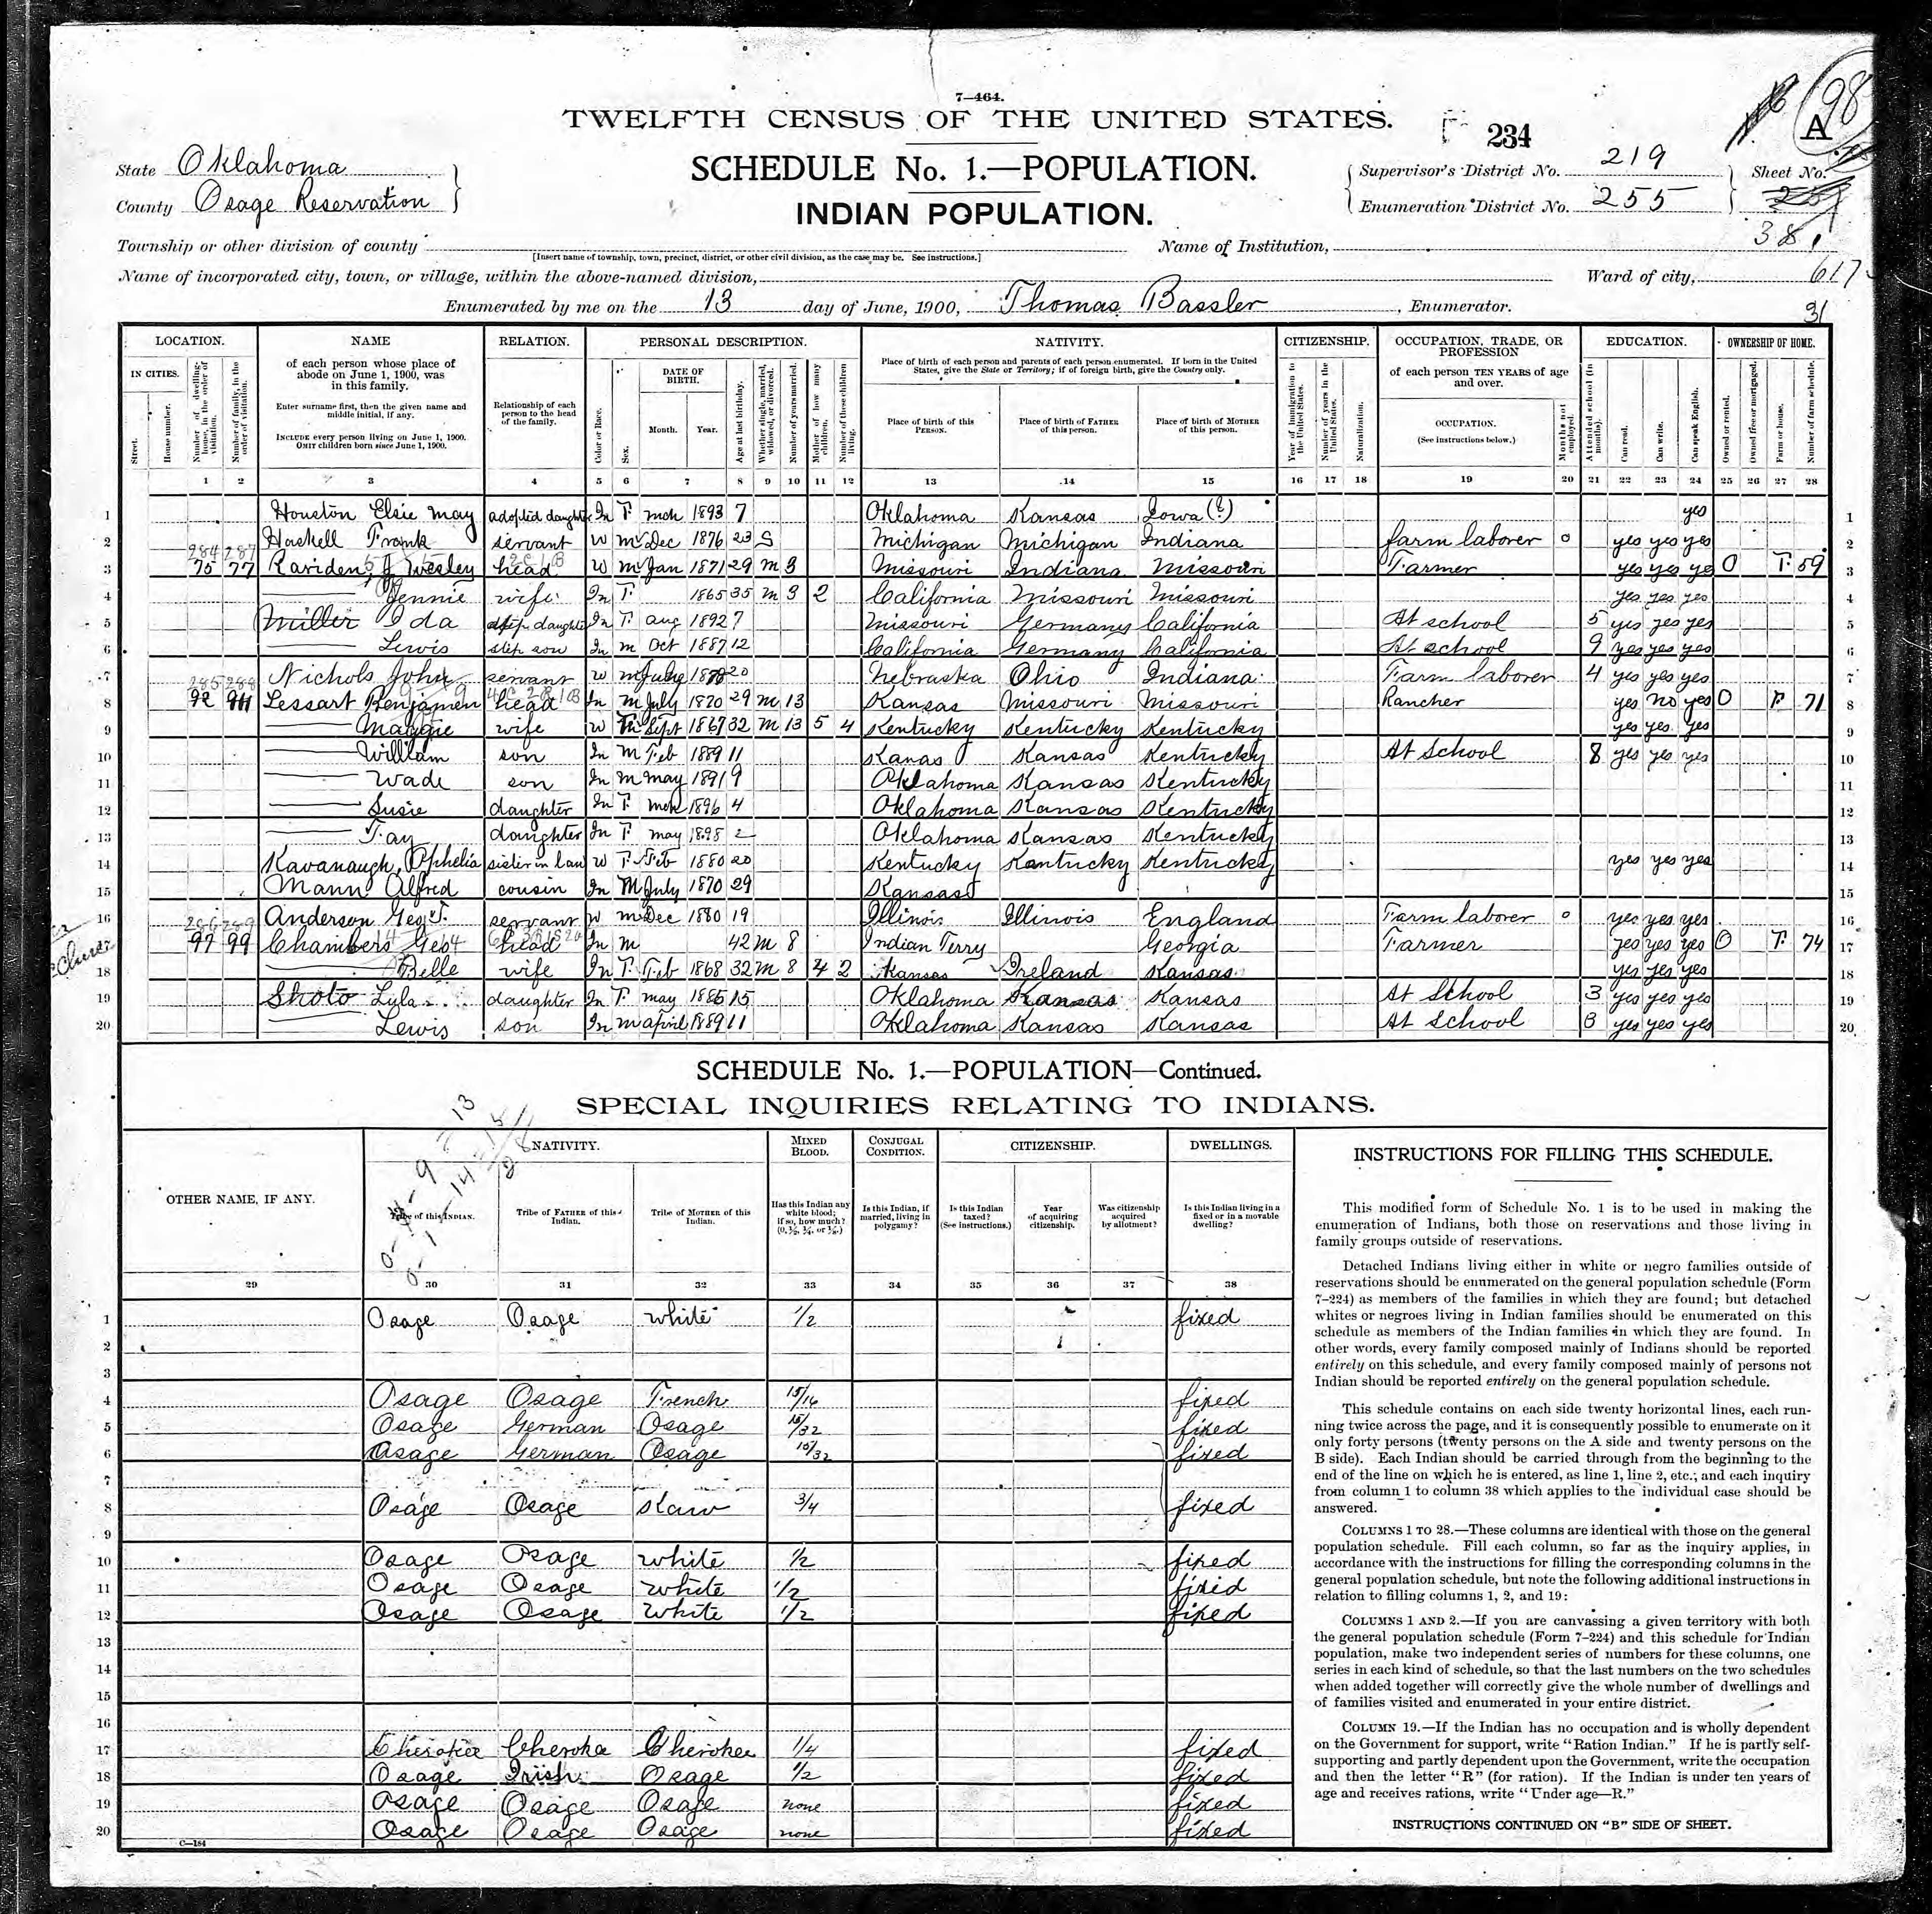 7—464.
TWELFTH CENSUS OF THE UNITED STATES.
234
98
A
State Oklahoma
County Osage Reservation
SCHEDULE No. 1.—POPULATION.
INDIAN POPULATION.
Supervisor's District No. 219
Enumeration District No. 255
Sheet No.
38
Township or other division of county
[Insert name of township, town, precinct, district, or other civil division, as the case may be. See instructions.]
Name of Institution,
Name of incorporated city, town, or village, within the above-named division,
Ward of city,
617
Enumerated by me on the 13 day of June, 1900, Thomas Bassler, Enumerator.
31
LOCATION.
IN CITIES.
Street.
House number.
Number of dwelling-house, in the order of visitation.
Number of family, in the order of visitation.
NAME
of each person whose place of abode on June 1, 1900, was in this family.
Enter surname first, then the given name and middle initial, if any.
INCLUDE every person living on June 1, 1900.
OMIT children born since June 1, 1900.
RELATION.
Relationship of each person to the head of the family.
PERSONAL DESCRIPTION.
Color or Race.
Sex.
DATE OF BIRTH.
Month.
Year.
Age at last birthday.
Whether single, married, widowed, or divorced.
Number of years married.
Mother of how many children.
Number of these children living.
NATIVITY.
Place of birth of each person and parents of each person enumerated. If born in the United States, give the State or Territory; if of foreign birth, give the Country only.
Place of birth of this PERSON.
Place of birth of FATHER of this person.
Place of birth of MOTHER of this person.
CITIZENSHIP.
Year of immigration to the United States.
Number of years in the United States.
Naturalization.
OCCUPATION, TRADE, OR PROFESSION
of each person TEN YEARS of age and over.
OCCUPATION.
(See instructions below.)
Months not employed.
EDUCATION.
Attended school (in months).
Can read.
Can write.
Can speak English.
OWNERSHIP OF HOME.
Owned or rented.
Owned free or mortgaged.
Farm or house.
Number of farm schedule.
1 2 3 4 5 6 7 8 9 10 11 12 13 14 15 16 17 18 19 20 21 22 23 24 25 26 27 28
1 Houston Elsie May adopted daughter In F mch 1893 7 Oklahoma Kansas Iowa (?) yes 1
2 Haskell Frank servant W m Dec 1876 23 S Michigan Michigan Indiana farm laborer 0 yes yes yes 2
284 287
3 75 77 Raviden J Wesley head W m Jan 1871 29 m 3 Missouri Indiana Missouri Farmer yes yes yes O F 59 3
4 Jennie wife In F 1865 35 m 3 2 California Missouri Missouri yes yes yes 4
5 Miller Ida step daughter In F aug 1892 7 Missouri Germany California At school 5 yes yes yes 5
6 Lewis step son In m Oct 1887 12 California Germany California At school 9 yes yes yes 6
7 Nichols John servant W m July 20 Nebraska Ohio Indiana Farm laborer 4 yes yes yes 7
285 288
8 92 94 Lessart Benjamen head In m July 1870 29 m 13 Kansas Missouri Missouri Rancher yes no yes O F 71 8
9 Maggie wife W F Sept 1867 32 m 13 5 4 Kentucky Kentucky Kentucky yes yes yes 9
10 William son In M Feb 1889 11 Kanas Kansas Kentucky At School 8 yes yes yes 10
11 Wade son In m may 1891 9 Oklahoma Kansas Kentucky 11
12 Susie daughter In F mch 1896 4 Oklahoma Kansas Kentucky 12
13 Fay daughter In F may 1898 2 Oklahoma Kansas Kentucky 13
14 Kavanaugh, Ophelia sister in law W F Feb 1880 20 Kentucky Kentucky Kentucky yes yes yes 14
15 Mann Alfred cousin In M July 1870 29 Kansas 15
16 Anderson Geo T. servant W m Dec 1880 19 Illinois Illinois England Farm laborer 0 yes yes yes 16
286 289
17 97 99 Chambers Geo head In m 42 m 8 Indian Terry Georgia Farmer yes yes yes O F 74 17
18 Belle wife In F Feb 1868 32 m 8 4 2 Kansas Ireland Kansas yes yes yes 18
19 Shoto Lyla daughter In F may 1885 15 Oklahoma Kansas Kansas At School 3 yes yes yes 19
20 Lewis son In m april 1889 11 Oklahoma Kansas Kansas At School 8 yes yes yes 20
SCHEDULE No. 1.—POPULATION—Continued.
SPECIAL INQUIRIES RELATING TO INDIANS.
OTHER NAME, IF ANY.
NATIVITY.
Tribe of this INDIAN.
Tribe of FATHER of this Indian.
Tribe of MOTHER of this Indian.
MIXED BLOOD.
Has this Indian any white blood; if so, how much? (0, ½, ¼, or ⅛.)
CONJUGAL CONDITION.
Is this Indian, if married, living in polygamy?
CITIZENSHIP.
Is this Indian taxed? (See instructions.)
Year of acquiring citizenship.
Was citizenship acquired by allotment?
DWELLINGS.
Is this Indian living in a fixed or in a movable dwelling?
29 30 31 32 33 34 35 36 37 38
1 Osage Osage white 1/2 fixed
2
3
4 Osage Osage French 15/16 fixed
5 Osage German Osage 15/32 fixed
6 Osage German Osage 15/32 fixed
7
8 Osage Osage Kaw 3/4 fixed
9
10 Osage Osage white 1/2 fixed
11 Osage Osage white 1/2 fixed
12 Osage Osage white 1/2 fixed
13
14
15
16
17 Cherokee Cheroke Cherokee 1/4 fixed
18 Osage Irish Osage 1/2 fixed
19 Osage Osage Osage none fixed
20 Osage Osage Osage none fixed
C—184
INSTRUCTIONS FOR FILLING THIS SCHEDULE.
This modified form of Schedule No. 1 is to be used in making the
enumeration of Indians, both those on reservations and those living in
family groups outside of reservations.
Detached Indians living either in white or negro families outside of
reservations should be enumerated on the general population schedule (Form
7–224) as members of the families in which they are found; but detached
whites or negroes living in Indian families should be enumerated on this
schedule as members of the Indian families in which they are found. In
other words, every family composed mainly of Indians should be reported
entirely on this schedule, and every family composed mainly of persons not
Indian should be reported entirely on the general population schedule.
This schedule contains on each side twenty horizontal lines, each run-
ning twice across the page, and it is consequently possible to enumerate on it
only forty persons (twenty persons on the A side and twenty persons on the
B side). Each Indian should be carried through from the beginning to the
end of the line on which he is entered, as line 1, line 2, etc.; and each inquiry
from column 1 to column 38 which applies to the individual case should be
answered.
COLUMNS 1 TO 28.—These columns are identical with those on the general
population schedule. Fill each column, so far as the inquiry applies, in
accordance with the instructions for filling the corresponding columns in the
general population schedule, but note the following additional instructions in
relation to filling columns 1, 2, and 19:
COLUMNS 1 AND 2.—If you are canvassing a given territory with both
the general population schedule (Form 7–224) and this schedule for Indian
population, make two independent series of numbers for these columns, one
series in each kind of schedule, so that the last numbers on the two schedules
when added together will correctly give the whole number of dwellings and
of families visited and enumerated in your entire district.
COLUMN 19.—If the Indian has no occupation and is wholly dependent
on the Government for support, write “Ration Indian.” If he is partly self-
supporting and partly dependent upon the Government, write the occupation
and then the letter “R” (for ration). If the Indian is under ten years of
age and receives rations, write “Under age—R.”
INSTRUCTIONS CONTINUED ON “B” SIDE OF SHEET.